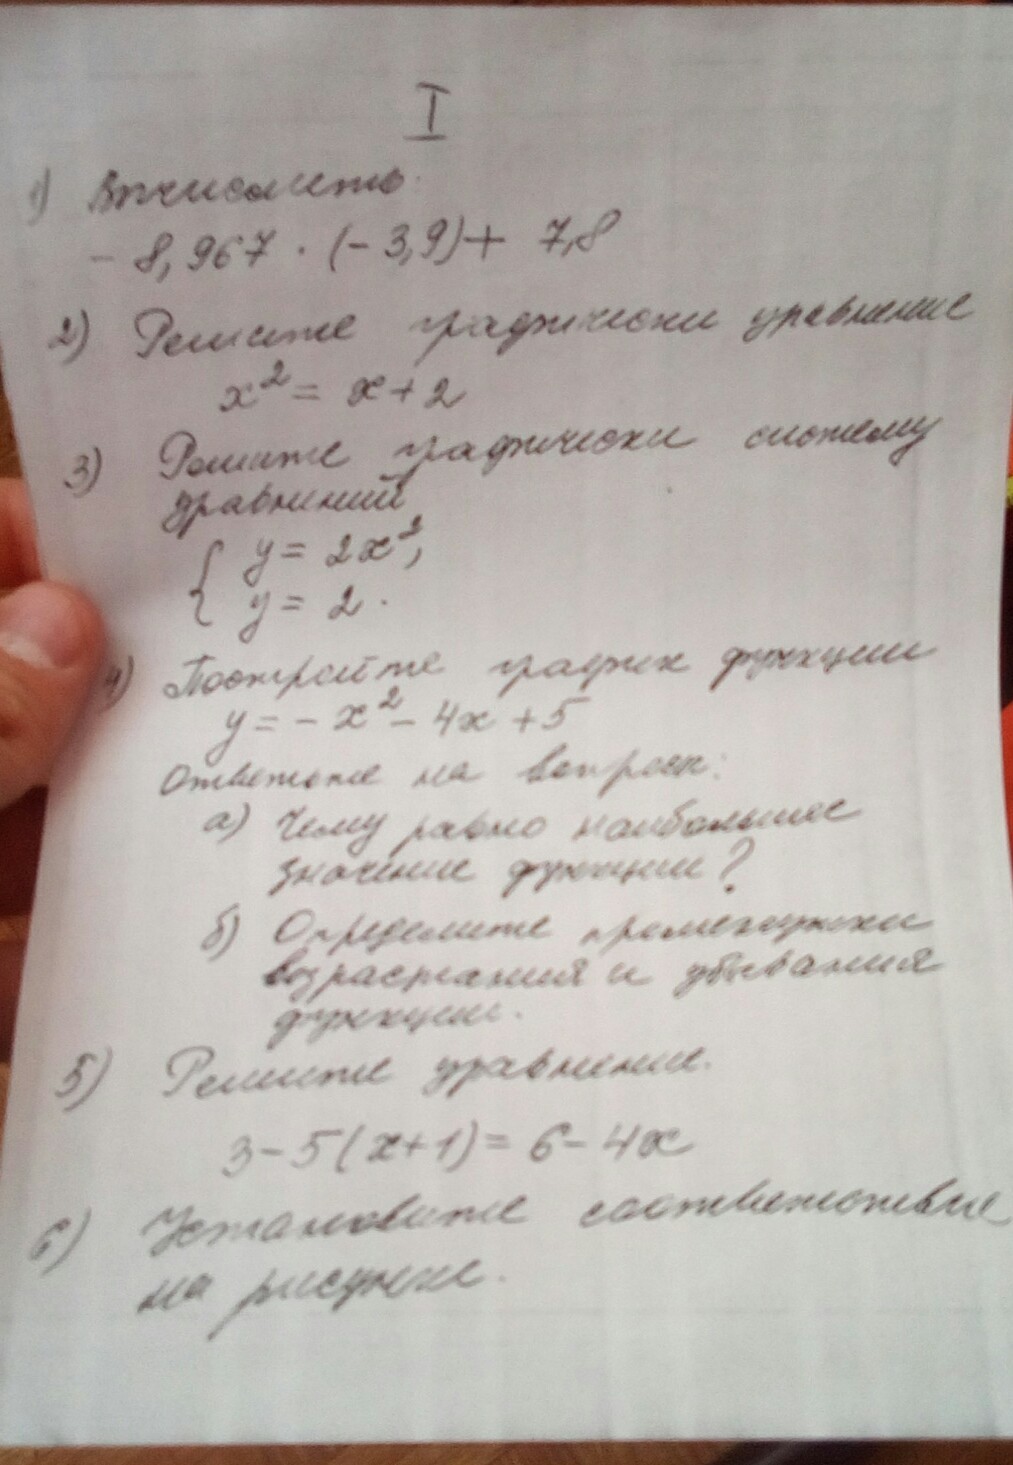 I
1) Вычислить:
- 8,967 · (- 3,9) + 7,8
2) Решите графически уравнение
x² = x + 2
3) Решите графически систему
уравнений
{ y = 2x²,
y = 2.
4) Постройте график функции
y = - x² - 4x + 5
Ответьте на вопросы:
а) Чему равно наибольшее
значение функции?
б) Определите промежутки
возрастания и убывания
функции.
5) Решите уравнение.
3 - 5(x+1) = 6 - 4x
6) Установите соответствие
на рисунке.